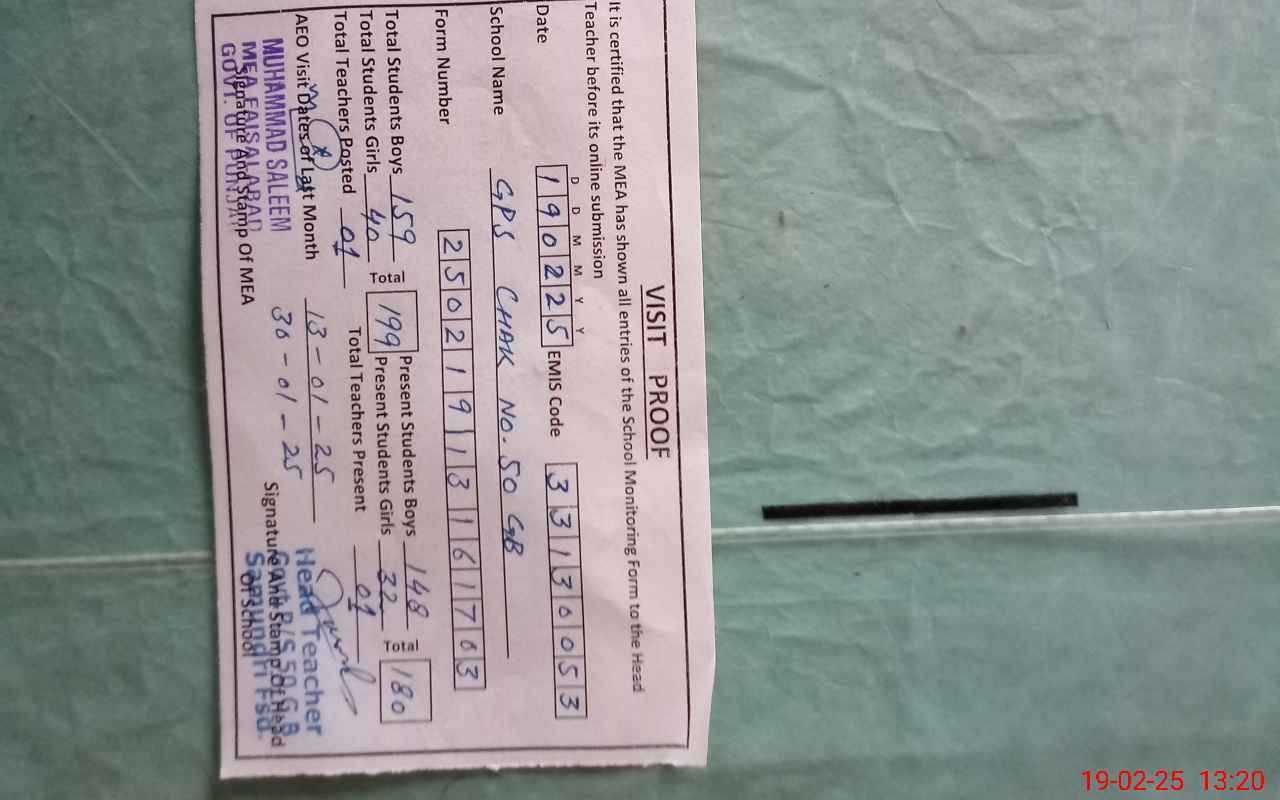 VISIT PROOF
It is certified that the MEA has shown all entries of the School Monitoring Form to the Head
Teacher before its online submission
D D M M Y Y
Date 190225 EMIS Code 33130053
School Name GPS CHAK NO. 50 GB
Form Number 25021913161703
Total Students Boys 159 Total 199 Present Students Boys 148 Total 180
Total Students Girls 40 Present Students Girls 32
Total Teachers Posted 01 Total Teachers Present 01
AEO Visit Dates of Last Month 13-01-25
30-01-25
MUHAMMAD SALEEM
MEA FAISALABAD
GOVT. OF PUNJAB
Signature And Stamp Of MEA
Head Teacher
Govt. P/S 50 G.B
Samundri Fsd.
Signature And Stamp Of Head
Of School
19-02-25 13:20